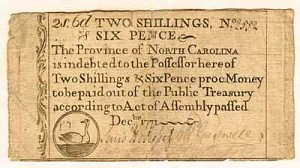 2s. 6d TWO SHILLINGS, No.
& SIX PENCE
The Province of NORTH CAROLINA
is indebted to the Possessor hereof
Two Shillings & Six Pence proc. Money
to be paid out of the Public Treasury
according to Act of Assembly passed
Decbr. 1771